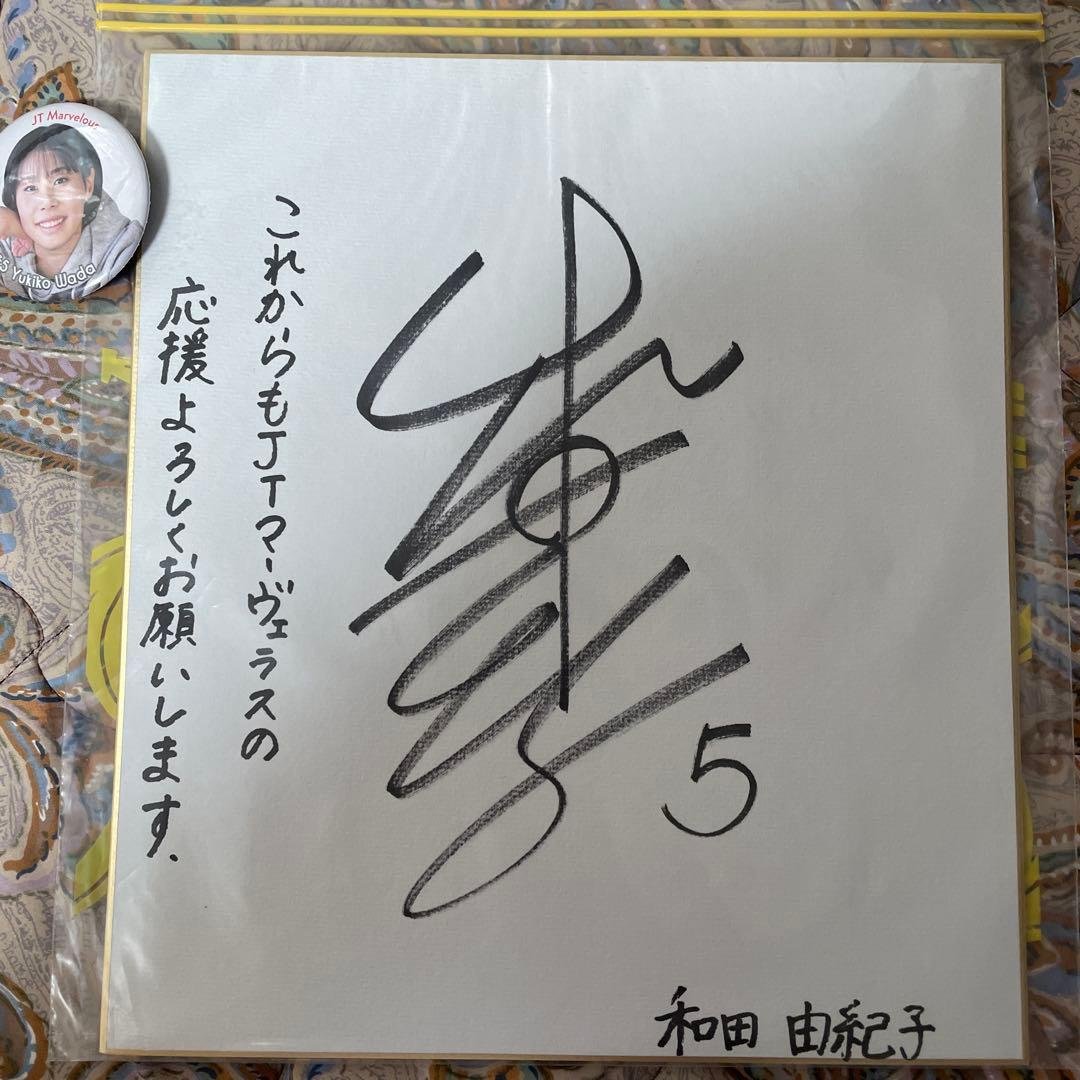 JT Marvelous
#5 Yukiko Wada
これからもJTマーヴェラスの
応援よろしくお願いします.
5
和田 由紀子